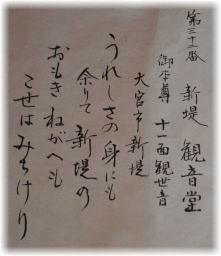 第三十二番 新堤 観音堂
御本尊 十一面観世音
大宮市新堤
うれしさの身にも
余りて新堤の
おもきねがへも
こせはみちけり